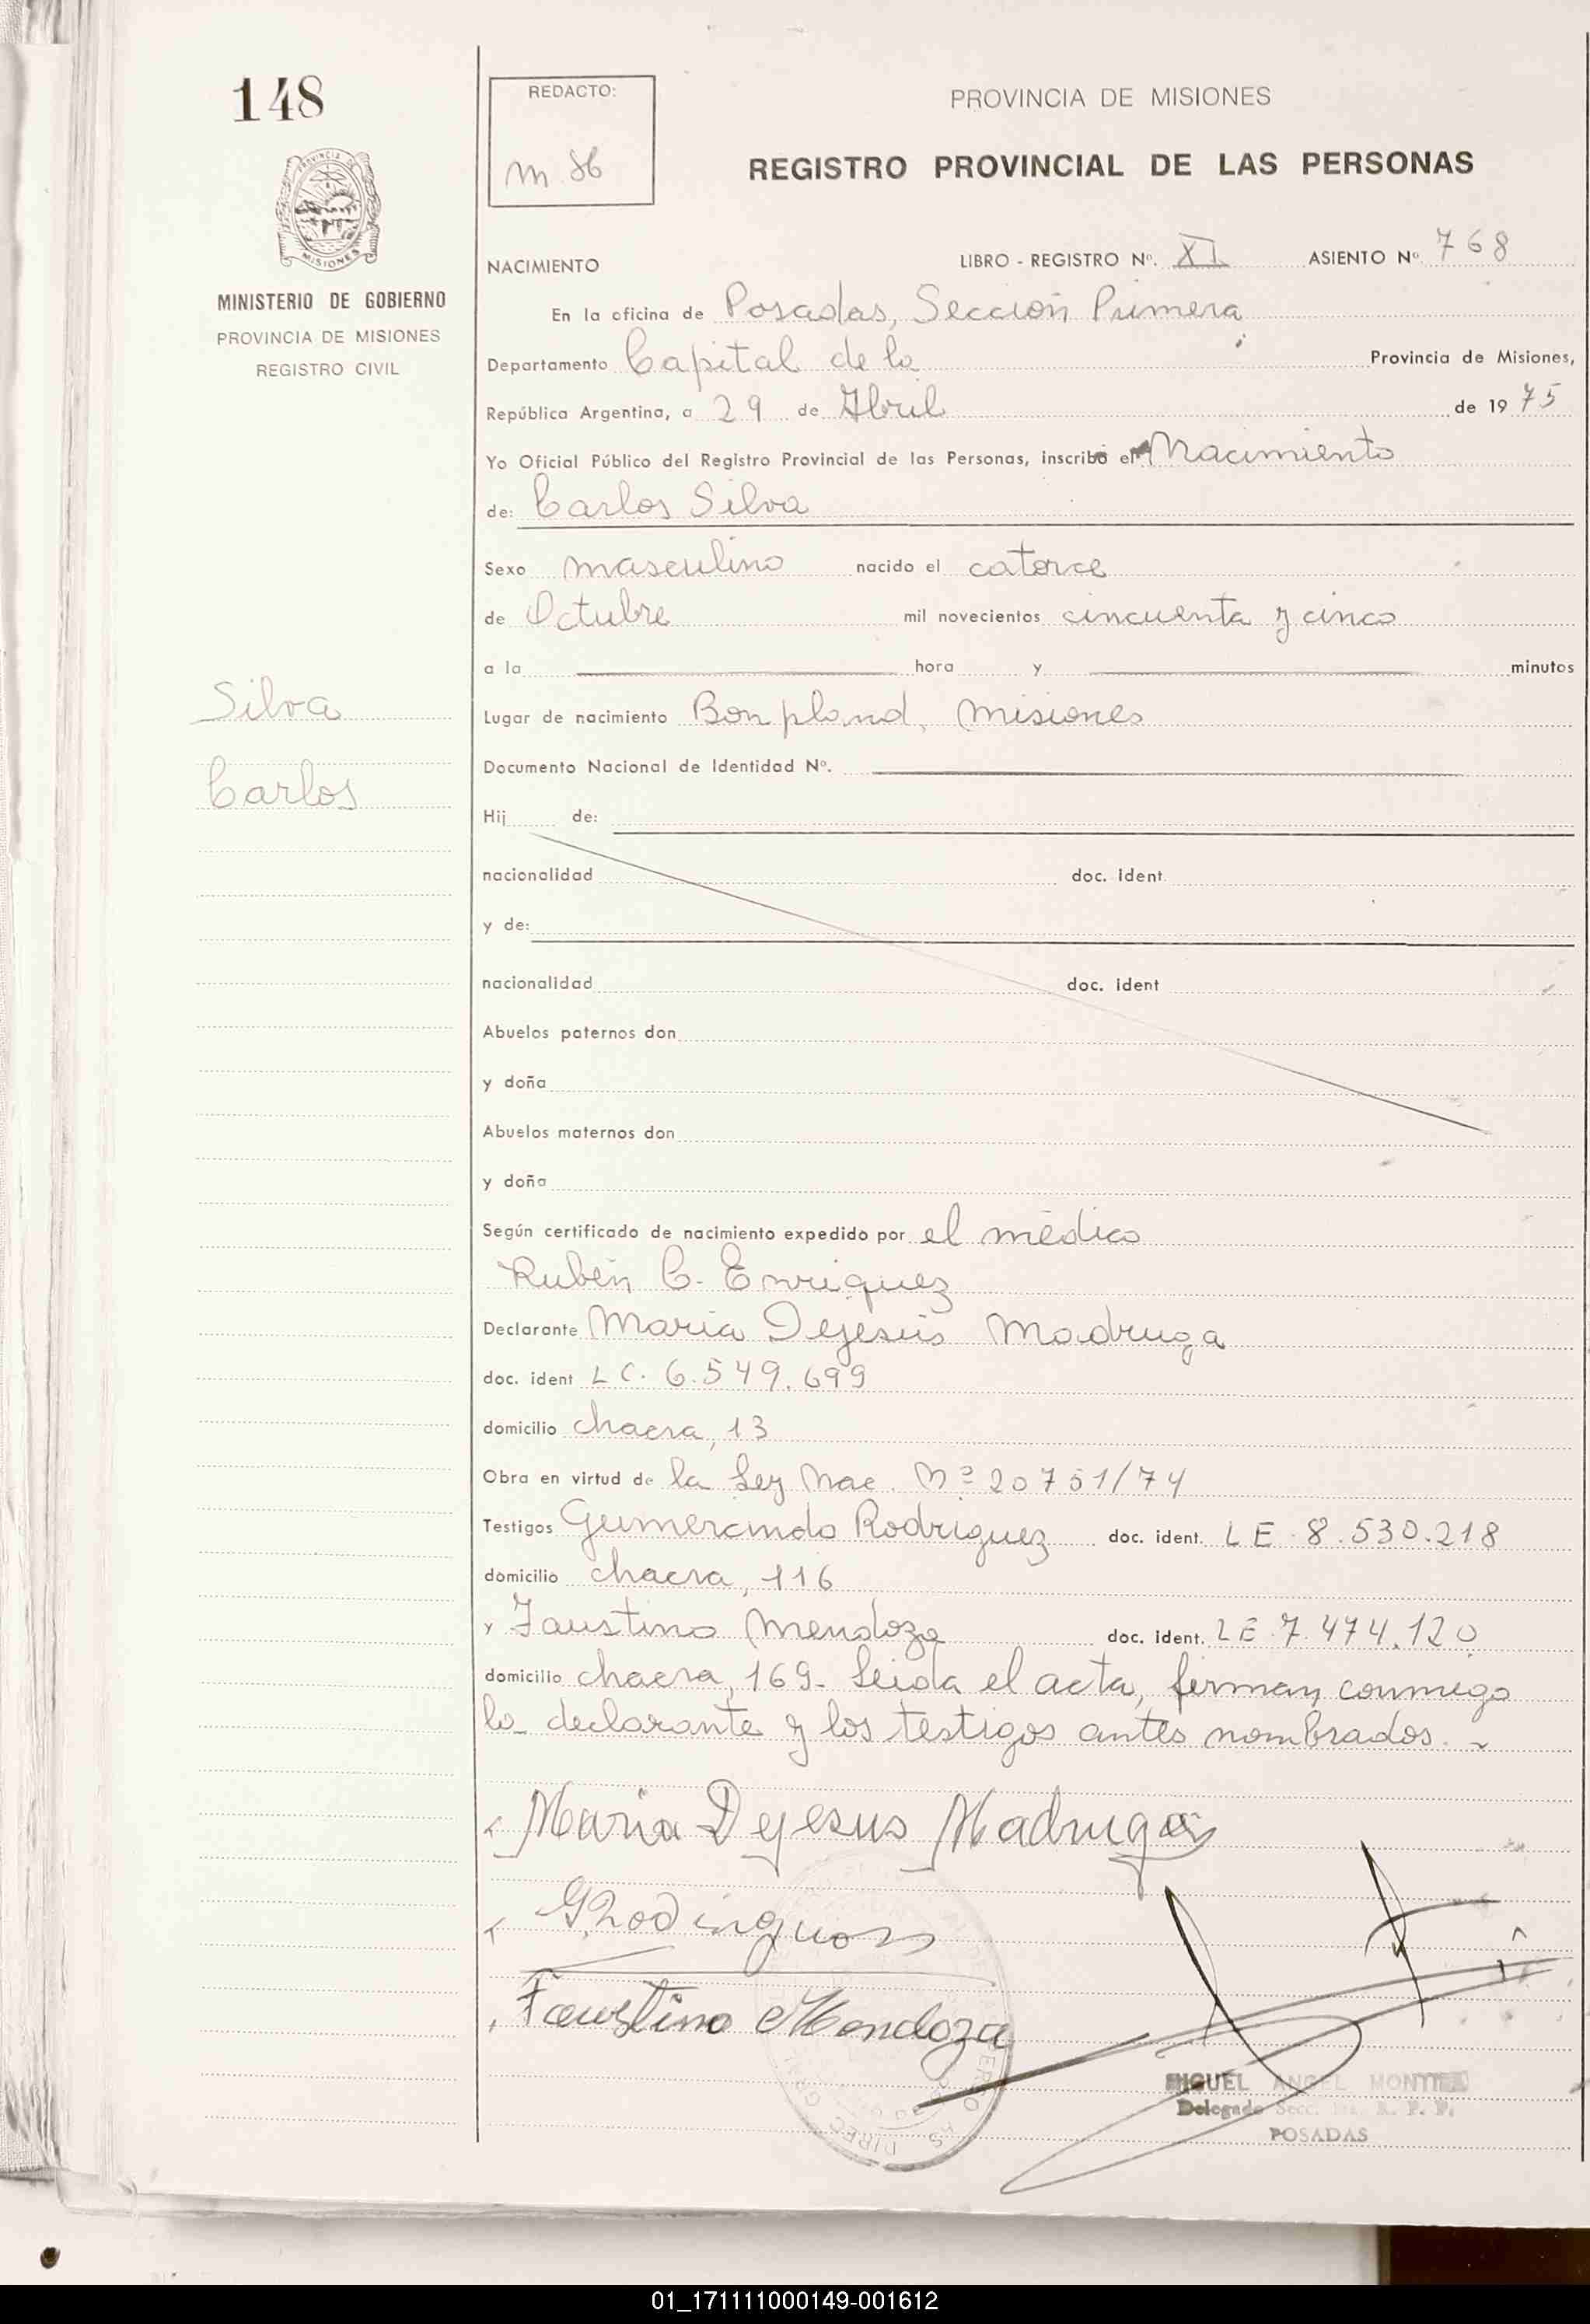 148
REDACTO:
PROVINCIA DE MISIONES
REGISTRO PROVINCIAL DE LAS PERSONAS
PROVINCIA DE
MISIONES
MINISTERIO DE GOBIERNO
PROVINCIA DE MISIONES
REGISTRO CIVIL
NACIMIENTO LIBRO - REGISTRO Nº. XI ASIENTO Nº 768
En la oficina de Posadas, Sección Primera
Departamento Capital de la Provincia de Misiones,
República Argentina, a 29 de Abril de 1975
Yo Oficial Público del Registro Provincial de las Personas, inscribo el Nacimiento
de: Carlos Silva
Sexo masculino nacido el catorce
de Octubre mil novecientos cincuenta y cinco
a la hora y minutos
Silva
Carlos
Lugar de nacimiento Bonpland, Misiones
Documento Nacional de Identidad Nº.
Hij de:
nacionalidad doc. ident.
y de:
nacionalidad doc. ident
Abuelos paternos don
y doña
Abuelos maternos don
y doña
Según certificado de nacimiento expedido por el médico
Rubén C. Enriquez
Declarante Maria Dejesús Madruga
doc. ident LC. 6.549.699
domicilio chacra, 13
Obra en virtud de la Ley Nac. Nº 20751/74
Testigos Gumercindo Rodriguez doc. ident. LE 8.530.218
domicilio chacra, 116
y Faustino Mendoza doc. ident. LE 7.474.120
domicilio chacra, 169- Leida el acta, firman conmigo
la declarante y los testigos antes nombrados.
Maria Dejesus Madruga
Faustino Mendoza
MIGUEL ANGEL MONTIEL
Delegado Secc. 1ra. R. P. P.
POSADAS
01_171111000149-001612